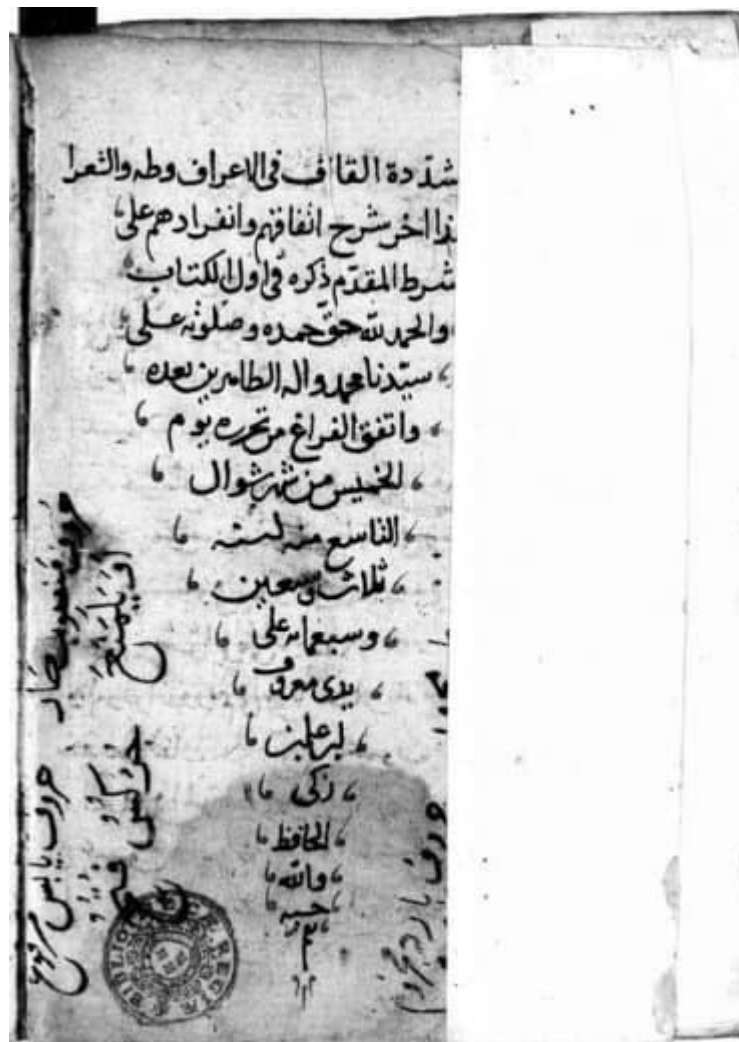 شدّدة القاف فى الاعراف وطه والشعرا
ذا اخر شرح اتفاقهم وانفرادهم على
شرط المقدّم ذكره فى اول الكتاب
والحمد لله حقّ حمده وصلوته على
سيّدنا محمد واله الطاهرين بعده
واتفق الفراغ من تحرره يوم
الخميس من شهر شوال
التاسع منه لسنه
ثلاث وسبعين
وسبعمائه على
يدى معروف
بن على بن
زكى
الحافظ
والله
حسبه
حروف منصوب
حروف يابس مرفوع
حروف بارد مجزوم
BIBLIOTHECAE REGIAE